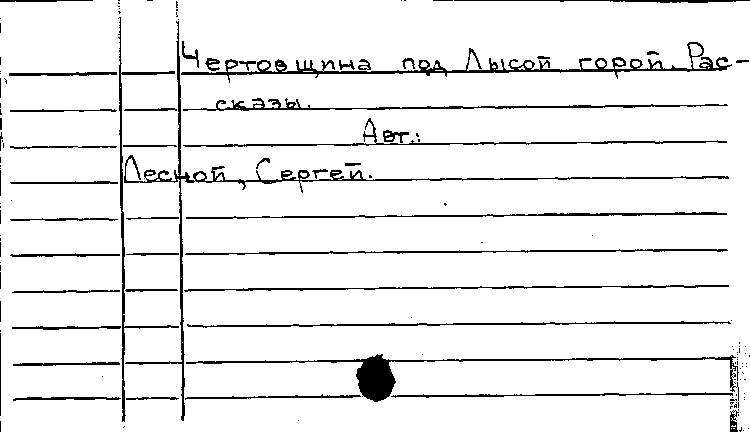 Чертовщина под Лысой горой. Рас-
сказы.
Авт.:
Лесной, Сергей.